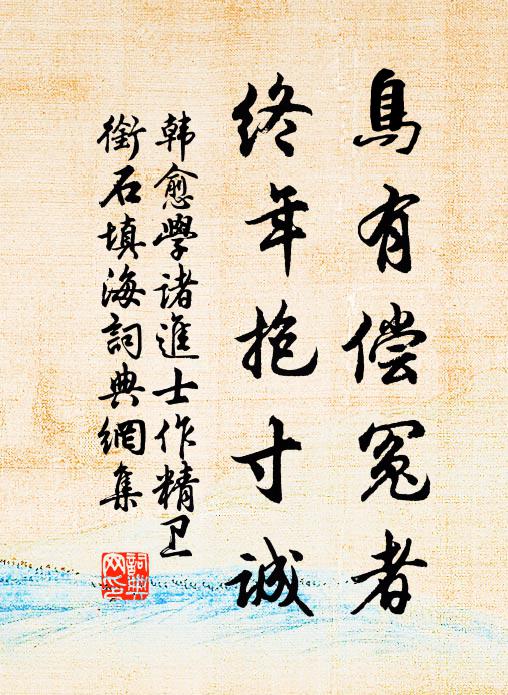 鳥有偿冤者
终年抱寸誠
韩愈學诸進士作精卫
銜石填海詞典網集
詞典
网